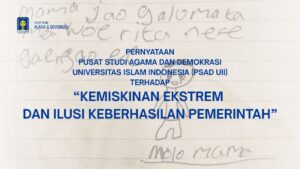 PUSAT STUDI
AGAMA & DEMOKRASI
mama jao galo mata
PERNYATAAN
PUSAT STUDI AGAMA DAN DEMOKRASI
UNIVERSITAS ISLAM INDONESIA (PSAD UII)
TERHADAP
“KEMISKINAN EKSTREM
DAN ILUSI KEBERHASILAN PEMERINTAH”
molo mama